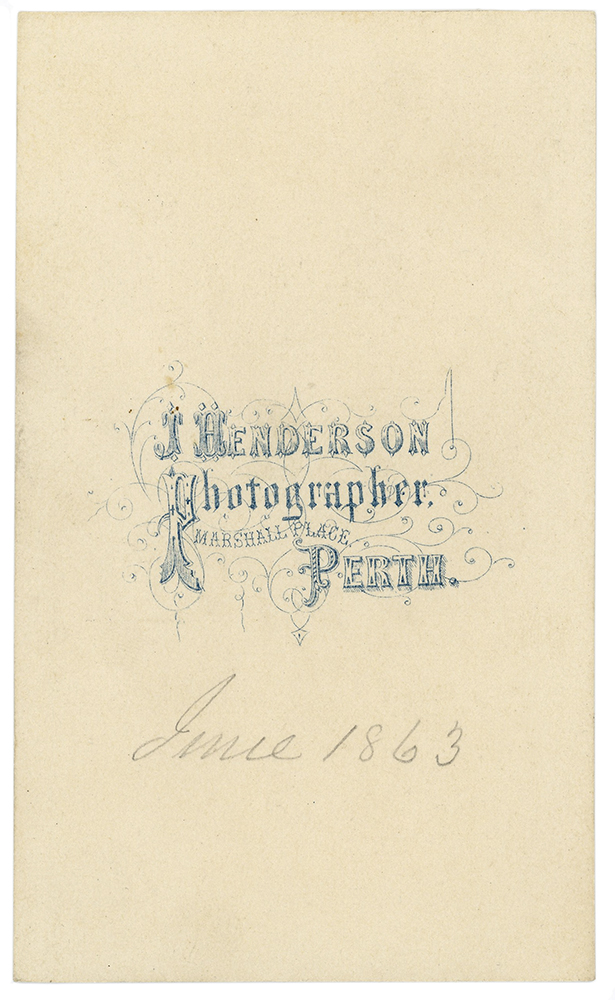 J HENDERSON
Photographer.
MARSHALL PLACE.
PERTH.
June 1863